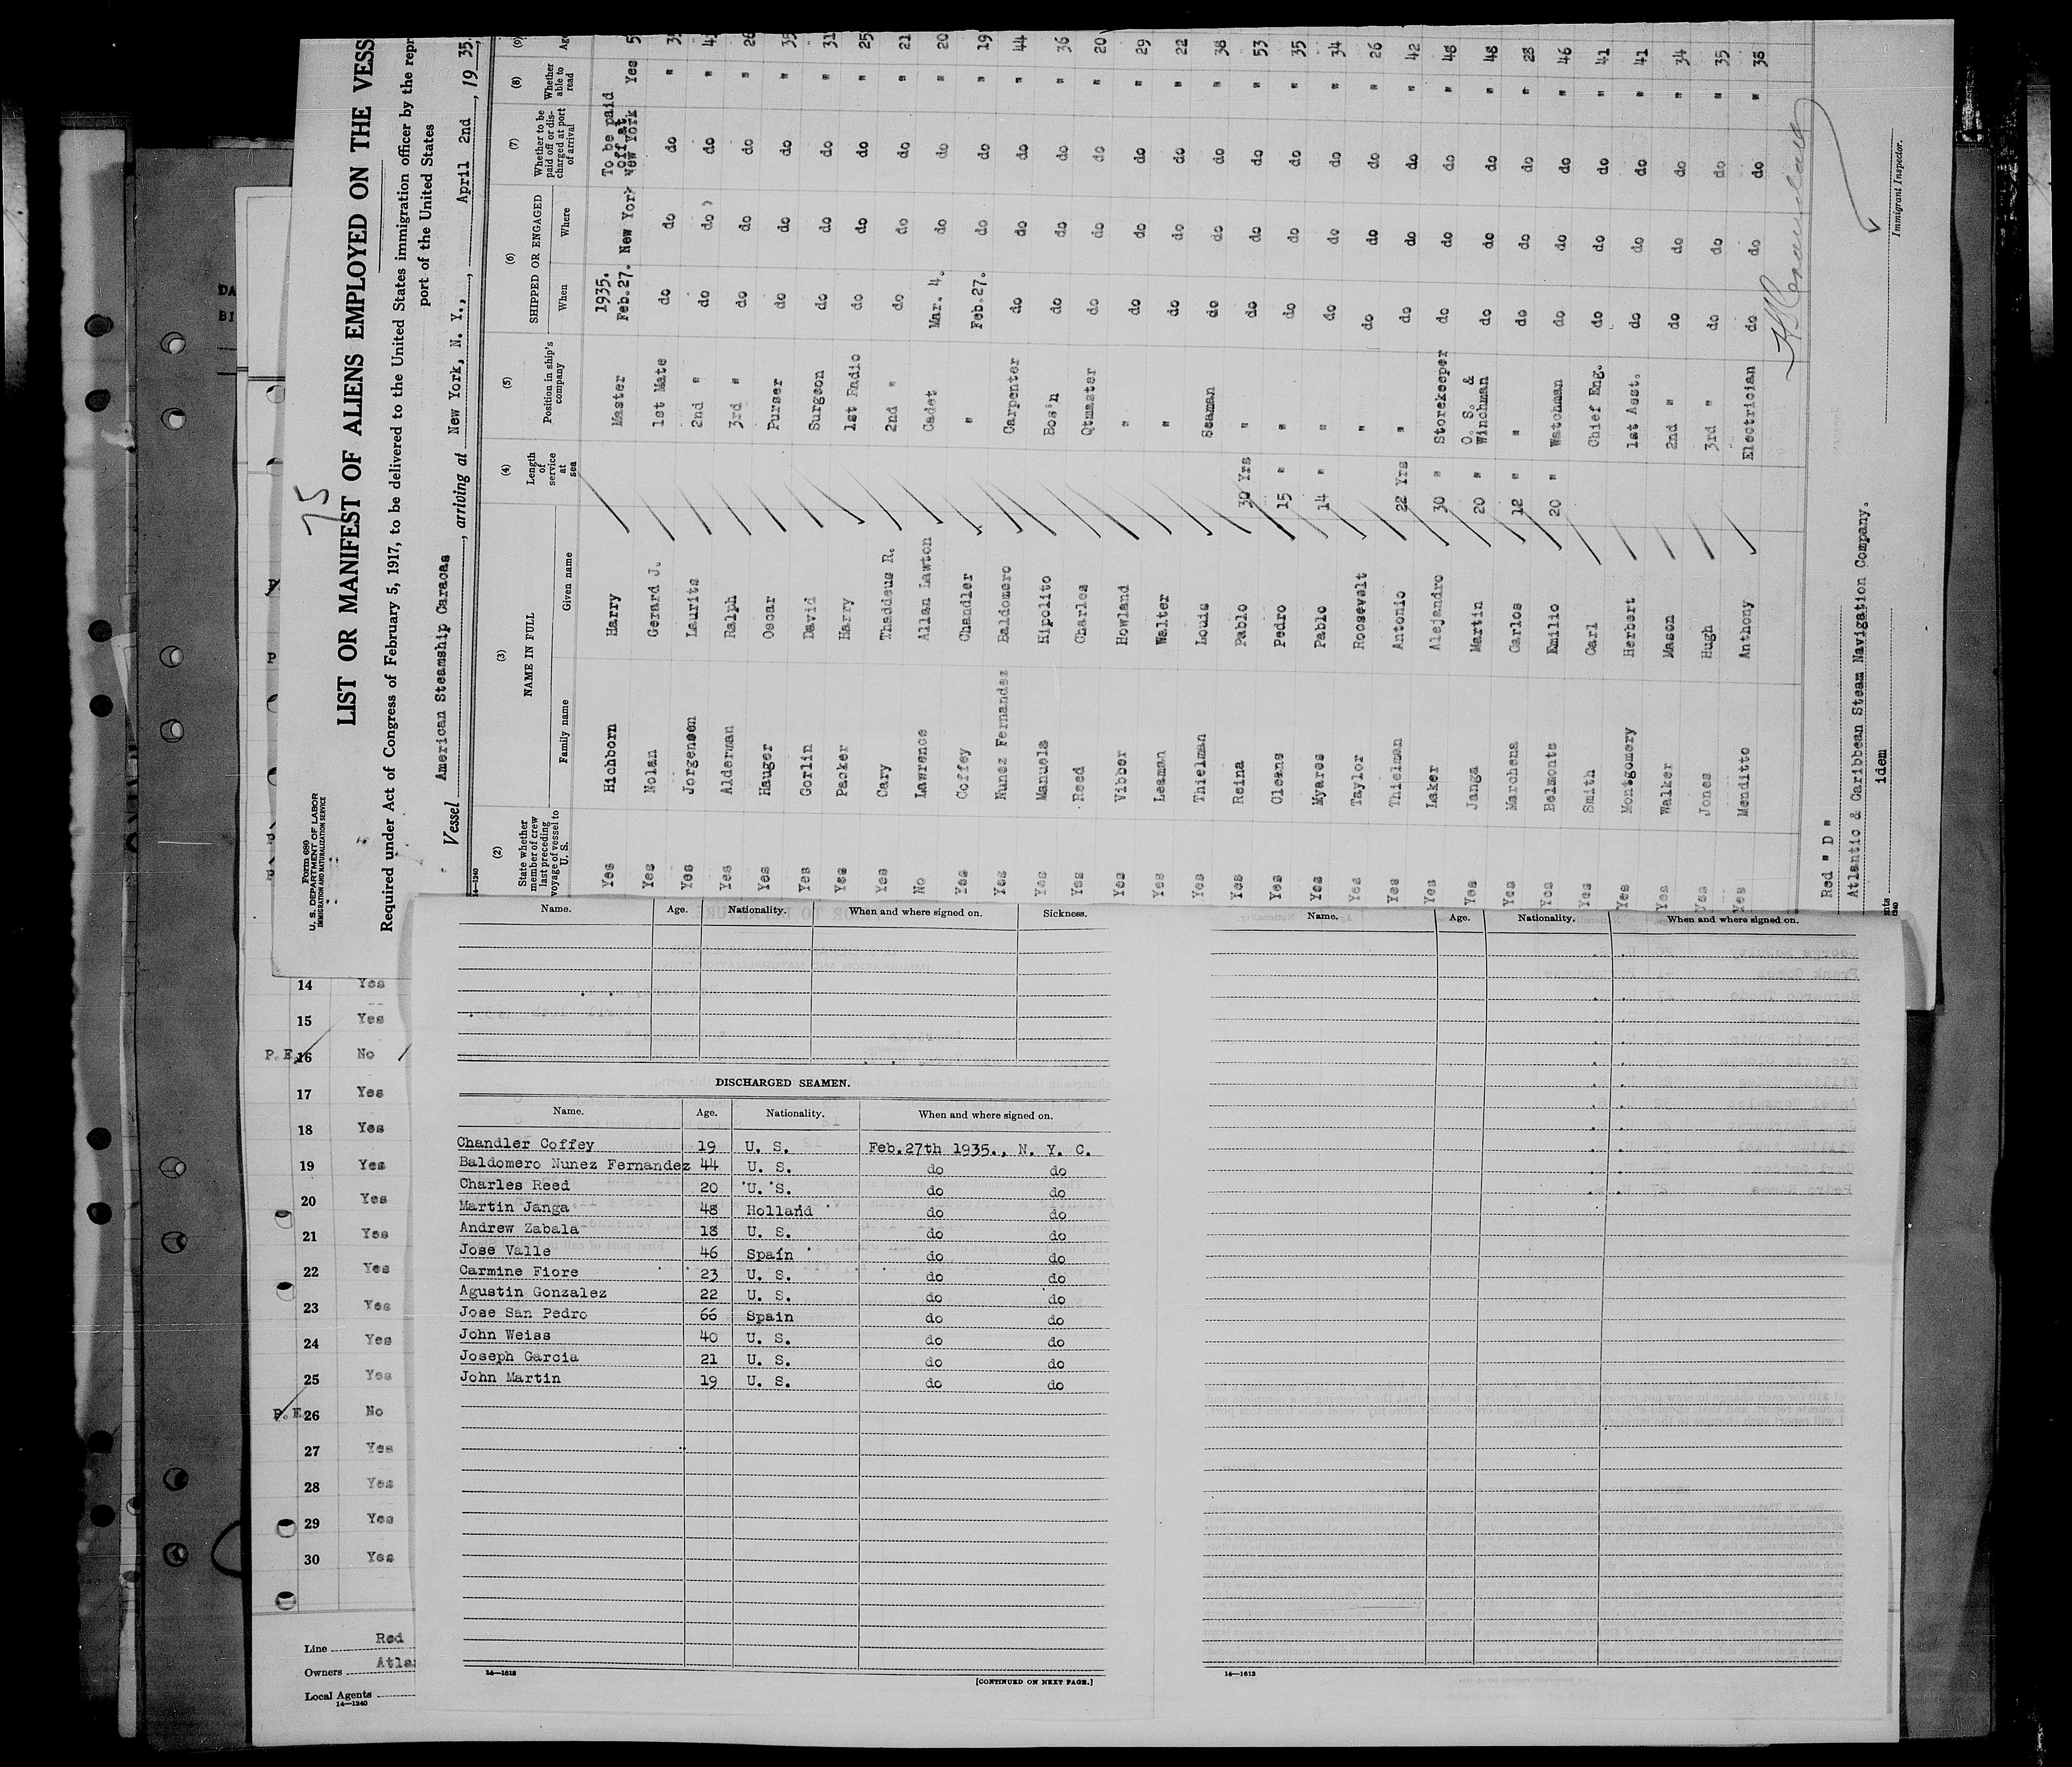 75
Form 680
U. S. DEPARTMENT OF LABOR
IMMIGRATION AND NATURALIZATION SERVICE
LIST OR MANIFEST OF ALIENS EMPLOYED ON THE VESS
Required under Act of Congress of February 5, 1917, to be delivered to the United States immigration officer by the repr
port of the United States
Vessel American Steamship Caracas, arriving at New York, N. Y., April 2nd, 19 35.
14—1240
(2) (3) (4) (5) (6) (7) (8) (9)
State whether member of crew last preceding voyage of vessel to U. S. NAME IN FULL Family name Given name Length of service at sea Position in ship's company SHIPPED OR ENGAGED When Where Whether to be paid off or discharged at port of arrival Whether able to read Ag
Yes Hichborn Harry Master 1935. Feb.27. New York To be paid off at New York Yes 5
Yes Nolan Gerard J. 1st Mate do do do " 3
Yes Jorgensen Laurits 2nd " do do do " 4
Yes Alderman Ralph 3rd " do do do " 26
Yes Hauger Oscar Purser do do do " 35
Yes Gorlin David Surgeon do do do " 31
Yes Packer Harry 1st Radio do do do " 25
Yes Cary Thaddeus R. 2nd " do do do " 21
No Lawrence Allan Lawton Cadet Mar. 4. do do " 20
Yes Coffey Chandler " Feb.27. do do " 19
Yes Nunez Fernandez Baldomero Carpenter do do do " 44
Yes Manuels Hipolito Bos'n do do do " 36
Yes Reed Charles Qtmaster do do do " 20
Yes Vibber Howland " do do do " 29
Yes Leaman Walter " do do do " 22
Yes Thielman Louis Seaman do do do " 38
Yes Reina Pablo 30 Yrs " do do do " 53
Yes Cleane Pedro 15 " " do do do " 35
Yes Myares Pablo 14 " " do do do " 34
Yes Taylor Roosevelt " do do do " 26
Yes Thielman Antonio 22 Yrs " do do do " 42
Yes Laker Alejandro 30 " Storekeeper do do do " 48
Yes Janga Martin 20 " O. S. & Winchman do do do " 48
Yes Marchena Carlos 12 " " do do do " 28
Yes Belmonte Emilio 20 " Watchman do do do " 46
Yes Smith Carl Chief Eng. do do do " 41
Yes Montgomery Herbert 1st Asst. do do do " 41
Yes Walker Mason 2nd " do do do " 34
Yes Jones Hugh 3rd " do do do " 35
Yes Menditto Anthony Electrician do do do " 38
Red " D "
Atlantic & Caribbean Steam Navigation Company.
idem
Immigrant Inspector.
nts
1240
DA
BI
14 Yes
15 Yes
P.E. 16 No
17 Yes
18 Yes
19 Yes
20 Yes
21 Yes
22 Yes
23 Yes
24 Yes
25 Yes
P.E. 26 No
27 Yes
28 Yes
29 Yes
30 Yes
Line Red
Owners Atla
Local Agents
14—1240
Name. Age. Nationality. When and where signed on. Sickness.
DISCHARGED SEAMEN.
Name. Age. Nationality. When and where signed on.
Chandler Coffey 19 U. S. Feb.27th 1935., N. Y. C.
Baldomero Nunez Fernandez 44 U. S. do do
Charles Reed 20 U. S. do do
Martin Janga 48 Holland do do
Andrew Zabala 18 U. S. do do
Jose Valle 46 Spain do do
Carmine Fiore 23 U. S. do do
Agustin Gonzalez 22 U. S. do do
Jose San Pedro 66 Spain do do
John Weiss 40 U. S. do do
Joseph Garcia 21 U. S. do do
John Martin 19 U. S. do do
14—1613
[CONTINUED ON NEXT PAGE.]
Name. Age. Nationality. When and where signed on.
14—1613